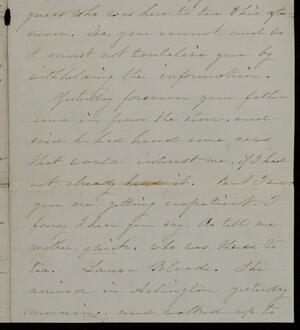 guess who was here to tea this after
noon. No, you cannot and so
I must not tantalize you by
withholding the information.
Yesterday forenoon your father
came in from the store, and
said he had heard some news
that would interest me, if I had
not already heard it. But I see
you are getting impatient. I
fancy I hear you say. Do tell me
mother, quick, who was there to
tea. Laura Blood. She
arrived in Arlington yesterday
morning, and walked up to